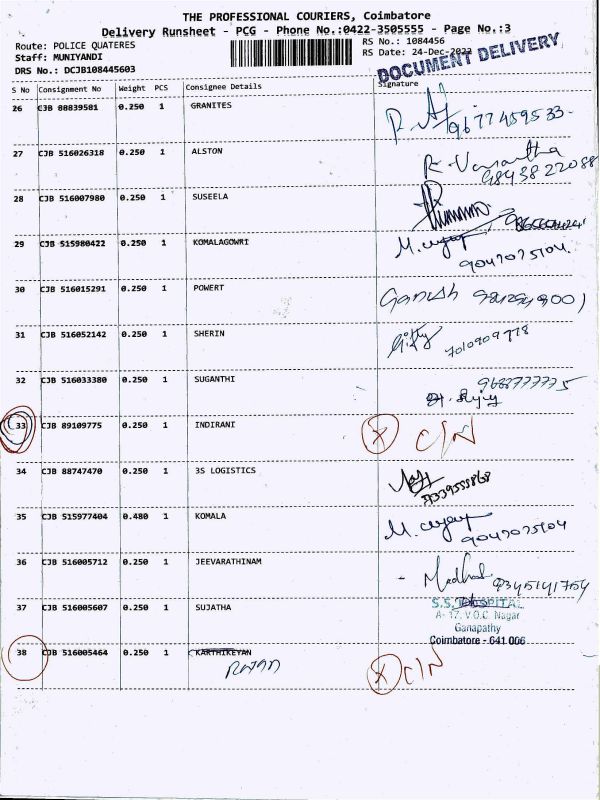 THE PROFESSIONAL COURIERS, Coimbatore
Delivery Runsheet - PCG - Phone No.:0422-3505555 - Page No.:3
Route: POLICE QUATERES
Staff: MUNIYANDI
DRS No.: DCJB108445603
RS No.: 1084456
RS Date: 24-Dec-2022
DOCUMENT DELIVERY
S No Consignment No Weight PCS Consignee Details Signature
26 CJB 88839581 0.250 1 GRANITES 9677459533
27 CJB 516026318 0.250 1 ALSTON 9843822088
28 CJB 516007980 0.250 1 SUSEELA
29 CJB 515980422 0.250 1 KOMALAGOWRI 9047075104
30 CJB 516015291 0.250 1 POWERT Ganesh
31 CJB 516052142 0.250 1 SHERIN 7010909778
32 CJB 516033380 0.250 1 SUGANTHI
33 CJB 89109775 0.250 1 INDIRANI X C/N
34 CJB 88747470 0.250 1 3S LOGISTICS
35 CJB 515977404 0.480 1 KOMALA 9047075104
36 CJB 516005712 0.250 1 JEEVARATHINAM 9345141754
37 CJB 516005607 0.250 1 SUJATHA
S.S. HOSPITAL
A- 37, V.O.C. Nagar
Ganapathy
Coimbatore - 641 006
38 CJB 516005464 0.250 1 KARTHIKEYAN X C/N
RAJAN